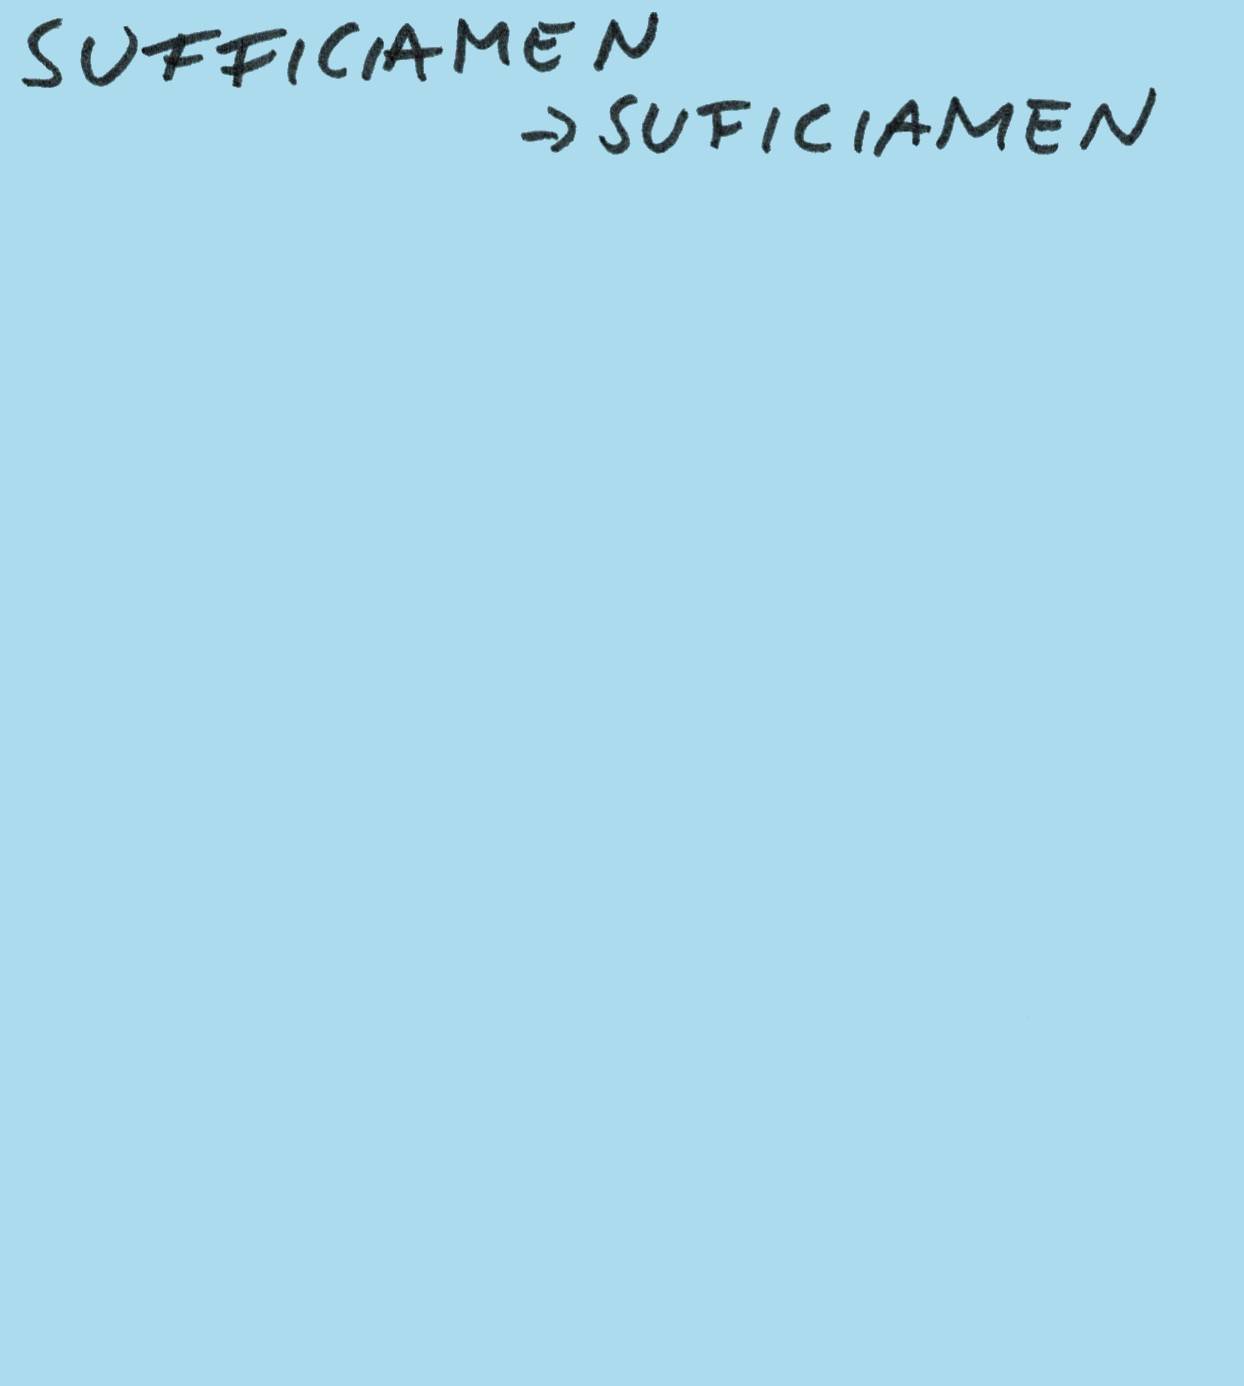 SUFFICIAMEN
→ SUFICIAMEN